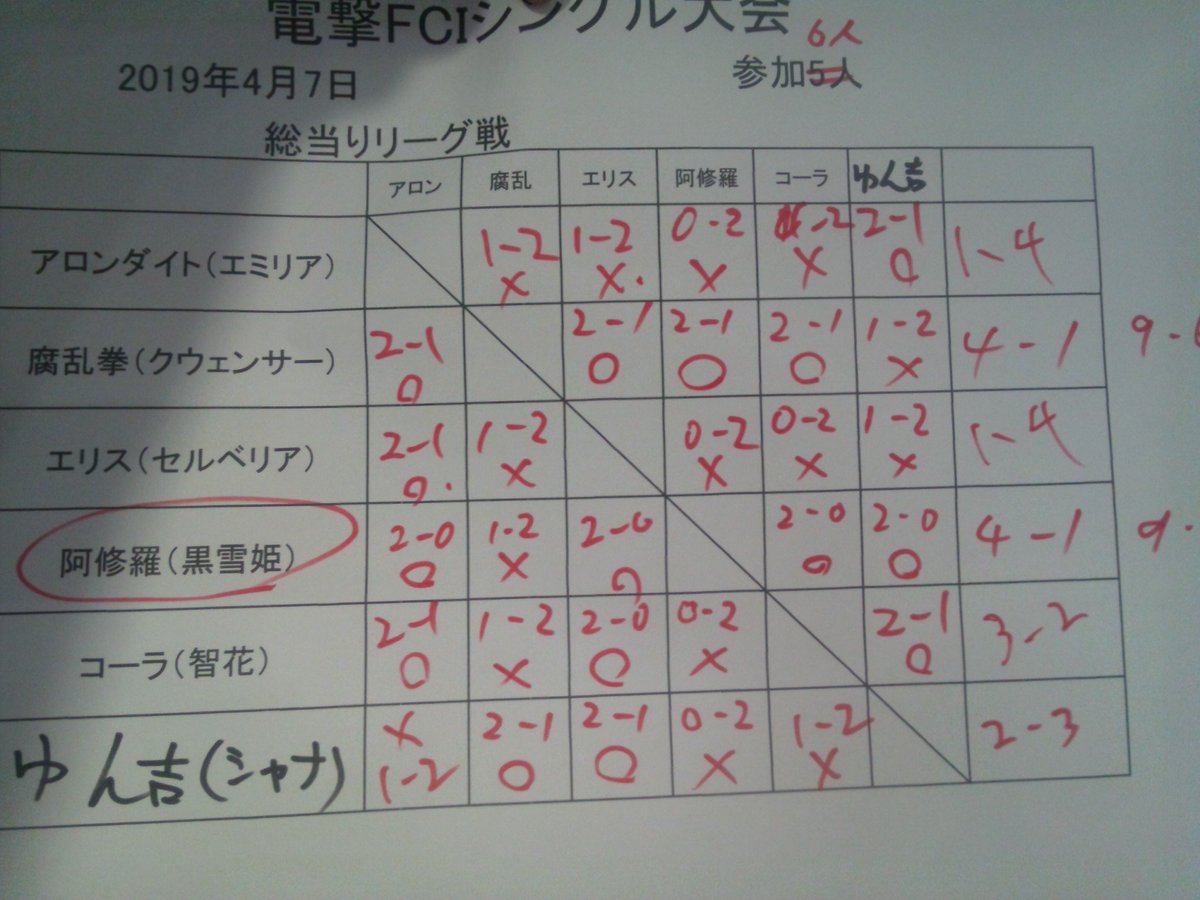 電撃FCIシングル大会
6人
2019年4月7日 参加5人
総当りリーグ戦
アロン 腐乱 エリス 阿修羅 コーラ ゆん吉
アロンダイト(エミリア) 1-2 × 1-2 × 0-2 × -2 × 2-1 ○ 1-4
腐乱拳(クウェンサー) 2-1 ○ 2-1 ○ 2-1 ○ 2-1 ○ 1-2 × 4-1 9-
エリス(セルベリア) 2-1 ○ 1-2 × 0-2 × 0-2 × 1-2 × 1-4
阿修羅(黒雪姫) 2-0 ○ 1-2 × 2-0 ○ 2-0 ○ 2-0 ○ 4-1 9-
コーラ(智花) 2-1 ○ 1-2 × 2-0 ○ 0-2 × 2-1 ○ 3-2
ゆん吉(シャナ) × 1-2 2-1 ○ 2-1 ○ 0-2 × 1-2 × 2-3